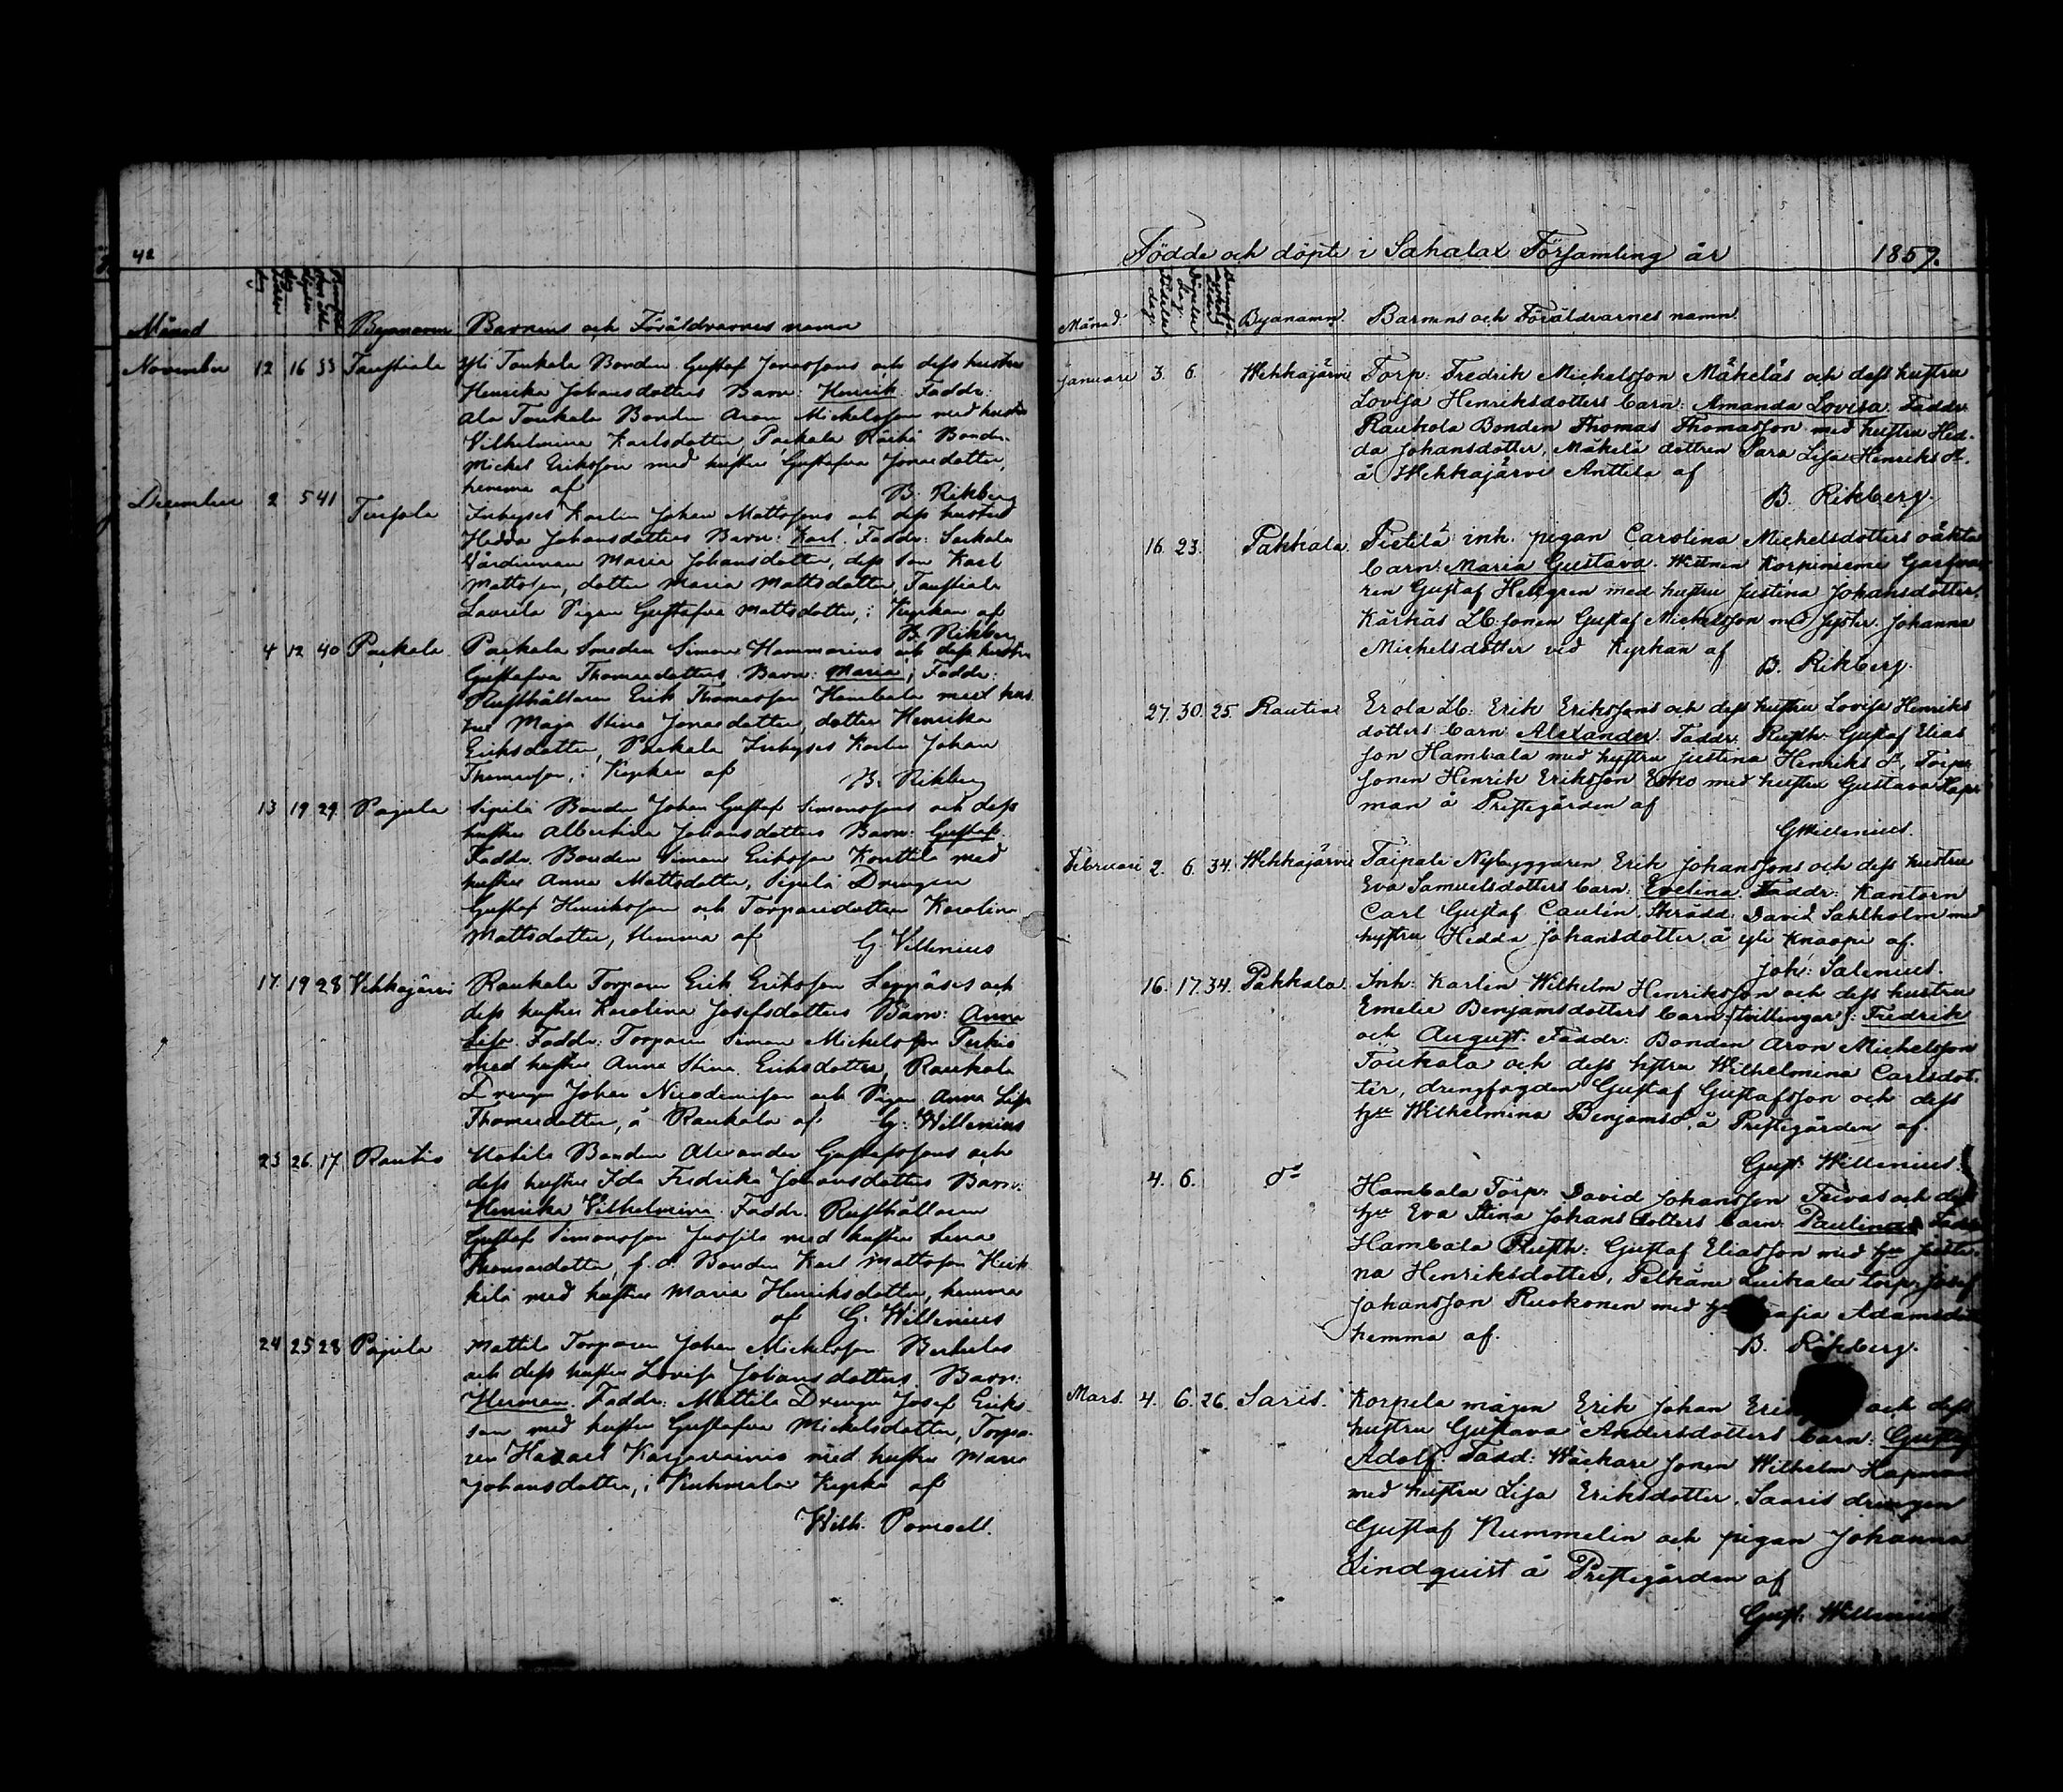 42
Månad Byanamn Barnens och Föräldrarnes namn
November 12 16 33 Taustiala Yli Toukala Bonden Gustaf Jonassons och dess hustru
Henrika Johansdotters Barn: Henrik. Faddr:
Ala Toukala Bonden Aron Mickelsson med hustru
Vilhelmina Karlsdotter, Packala Bonden
Mickel Eriksson med hustru Gustafva Jonasdotter,
hemma af B. Rikberg
December 2 5 41 Inhyses Karlen Johan Mattssons och dess hustru
Hedda Johansdotters Barn: Karl. Faddr:
Värdinnan Maria Johansdotter, dess son Karl
Mattsson, dotter Maria Mattsdotter, Taustiala
Laurila Pigan Gustafva Mattsdotter, i Kyrkan af
B. Rikberg
4 12 40 Packala Packala Smeden Simon Hammarins och dess hustru
Gustafva Thomasdotters Barn: Maria; Faddr:
Rusthållaren Erik Thomasson Hambala med hus-
tru Maja Stina Jonasdotter, dotter Henrika
Eriksdotter, Packala Inhyses Karlen Johan
Thomasson, i Kyrkan af B. Rikberg
13 19 29 Pajula Sipilä Bonden Johan Gustaf Simonssons och dess
hustru Albertina Johansdotters Barn: Gustaf.
Faddr. Bonden Simon Eriksson Konttila med
hustru Anna Mattsdotter, Sipilä Drengen
Gustaf Henriksson och Torparedottern Karolina
Mattsdotter, Hemma af G. Villenius
17 19 28 Vehkajärvi Raukala Torparen Erik Eriksson Leppäses och
dess hustru Karolina Josefsdotters Barn: Anna
Lisa. Faddr: Torparen Simon Mickelsson
med hustru Anna Stina Eriksdotter, Raukala
Drengen Johan Nicodemsson och Pigan Anna Lisa
Thomasdotter, å Raukala af G. Willenius
23 26 17 Rautio Uotila Bonden Alexander Gustafssons och
dess hustru Ida Fredrika Johansdotters Barn:
Henrika Vilhelmina. Faddr. Rusthållaren
Gustaf Simonsson Jussila med hustru Lena
Thomasdotter, f.d. Bonden Karl Mattsson Heik
kilä med hustru Maria Henriksdotter, hemma
af G. Willenius
24 25 28 Pajula Mattila Torparen Johan Mickelsson
och dess hustru Lovisa Johansdotters Barn:
Herman. Faddr: Mattila Drengen Josef Eriks-
son med hustru Gustafva Mickelsdotter, Torpa-
ren med hustru Maria
Johansdotter, i Kuhmalax Kyrka af
Wilh. Poroell.
Födde och döpte i Sahalax Församling år 1859.
Månad. Födelse dag Döpelse dag Byanamn. Barnens och Föräldrarnes namn.
Januari 3. 6. Wehkajärvi Torp: Fredrik Michelsson Mäkeläs och dess hustru
Lovisa Henriksdotters barn: Amanda Lovisa. Faddr.
Raukola Bonden Thomas Thomasson med hustru Hed-
da Johansdotter, Mäkelä dottren Sara Lisa Henriks dr.
å Wehkajärvi Anttila af
B. Rikberg.
16. 23. Pakkala. Pietilä inh. pigan Carolina Michelsdotters oäkta
barn: Maria Gustava. Wittnen Korpiniemi Garfva-
ren Gustaf Hellgren med hustru Justina Johansdotter,
Kärkäs Lb. sonen Gustaf Michelsson med syster Johanna
Michelsdotter vid Kyrkan af
B. Rikberg.
27. 30. 25. Rautio Erola Lb: Erik Erikssons och dess hustru Lovisa Henriks
dotters barn Alexander. Faddr. Rusth. Gustaf Elias
son Hambala med hustru Justina Henriks d., Torpar
sonen Henrik Eriksson Erko med hustru Gustava Hap
man å Prestegården af
GWillenius.
Februari 2. 6. 34. Wehkajärvi Taipale Nybyggaren Erik Johanssons och dess hustru
Eva Samuelsdotters barn: Evelina. Faddr: Kantorn
Carl Gustaf Caulin, Skrädd: David Sahlholm med
hustru Hedda Johansdotter, å Yli Knaapi af.
Joh: Salenius.
16. 17. 34. Pakkala. Inh: Karlen Wilhelm Henriksson och dess hustru
Emelie Benjamsdotters barn (tvillingar): Fredrik
och August. Faddr: Bonden Aron Michelsson
Toukala och dess hustru Wilhelmina Carlsdot-
ter, drengfogden Gustaf Gustafsson och dess
hu Wilhelmina Benjamsd. å Prestegården af.
Gust. Willenius.
4. 6. do Hambala Torp: David Johansson Teivas och dess
hu Eva Stina Johansdotters barn: Paulina. Fadd:
Hambala Rusth: Gustaf Eliasson med hu Justi-
na Henriksdotter, Pelkäne Luikala torp: Josef
Johansson Ruokonen med hu Adamsdot
hemma af.
B. Rikberg.
Mars. 4. 6. 26. Saris. Korpela mågen Erik Johan och dess
hustru Gustava Andersdotters barn: Gustaf
Adolf. Fadd: Wäckare sonen Wilhelm Hapman
med hustru Lisa Eriksdotter, Saaris drengen
Gustaf Nummelin och pigan Johanna
Lindquist å Prestegården af
Gust. Willenius